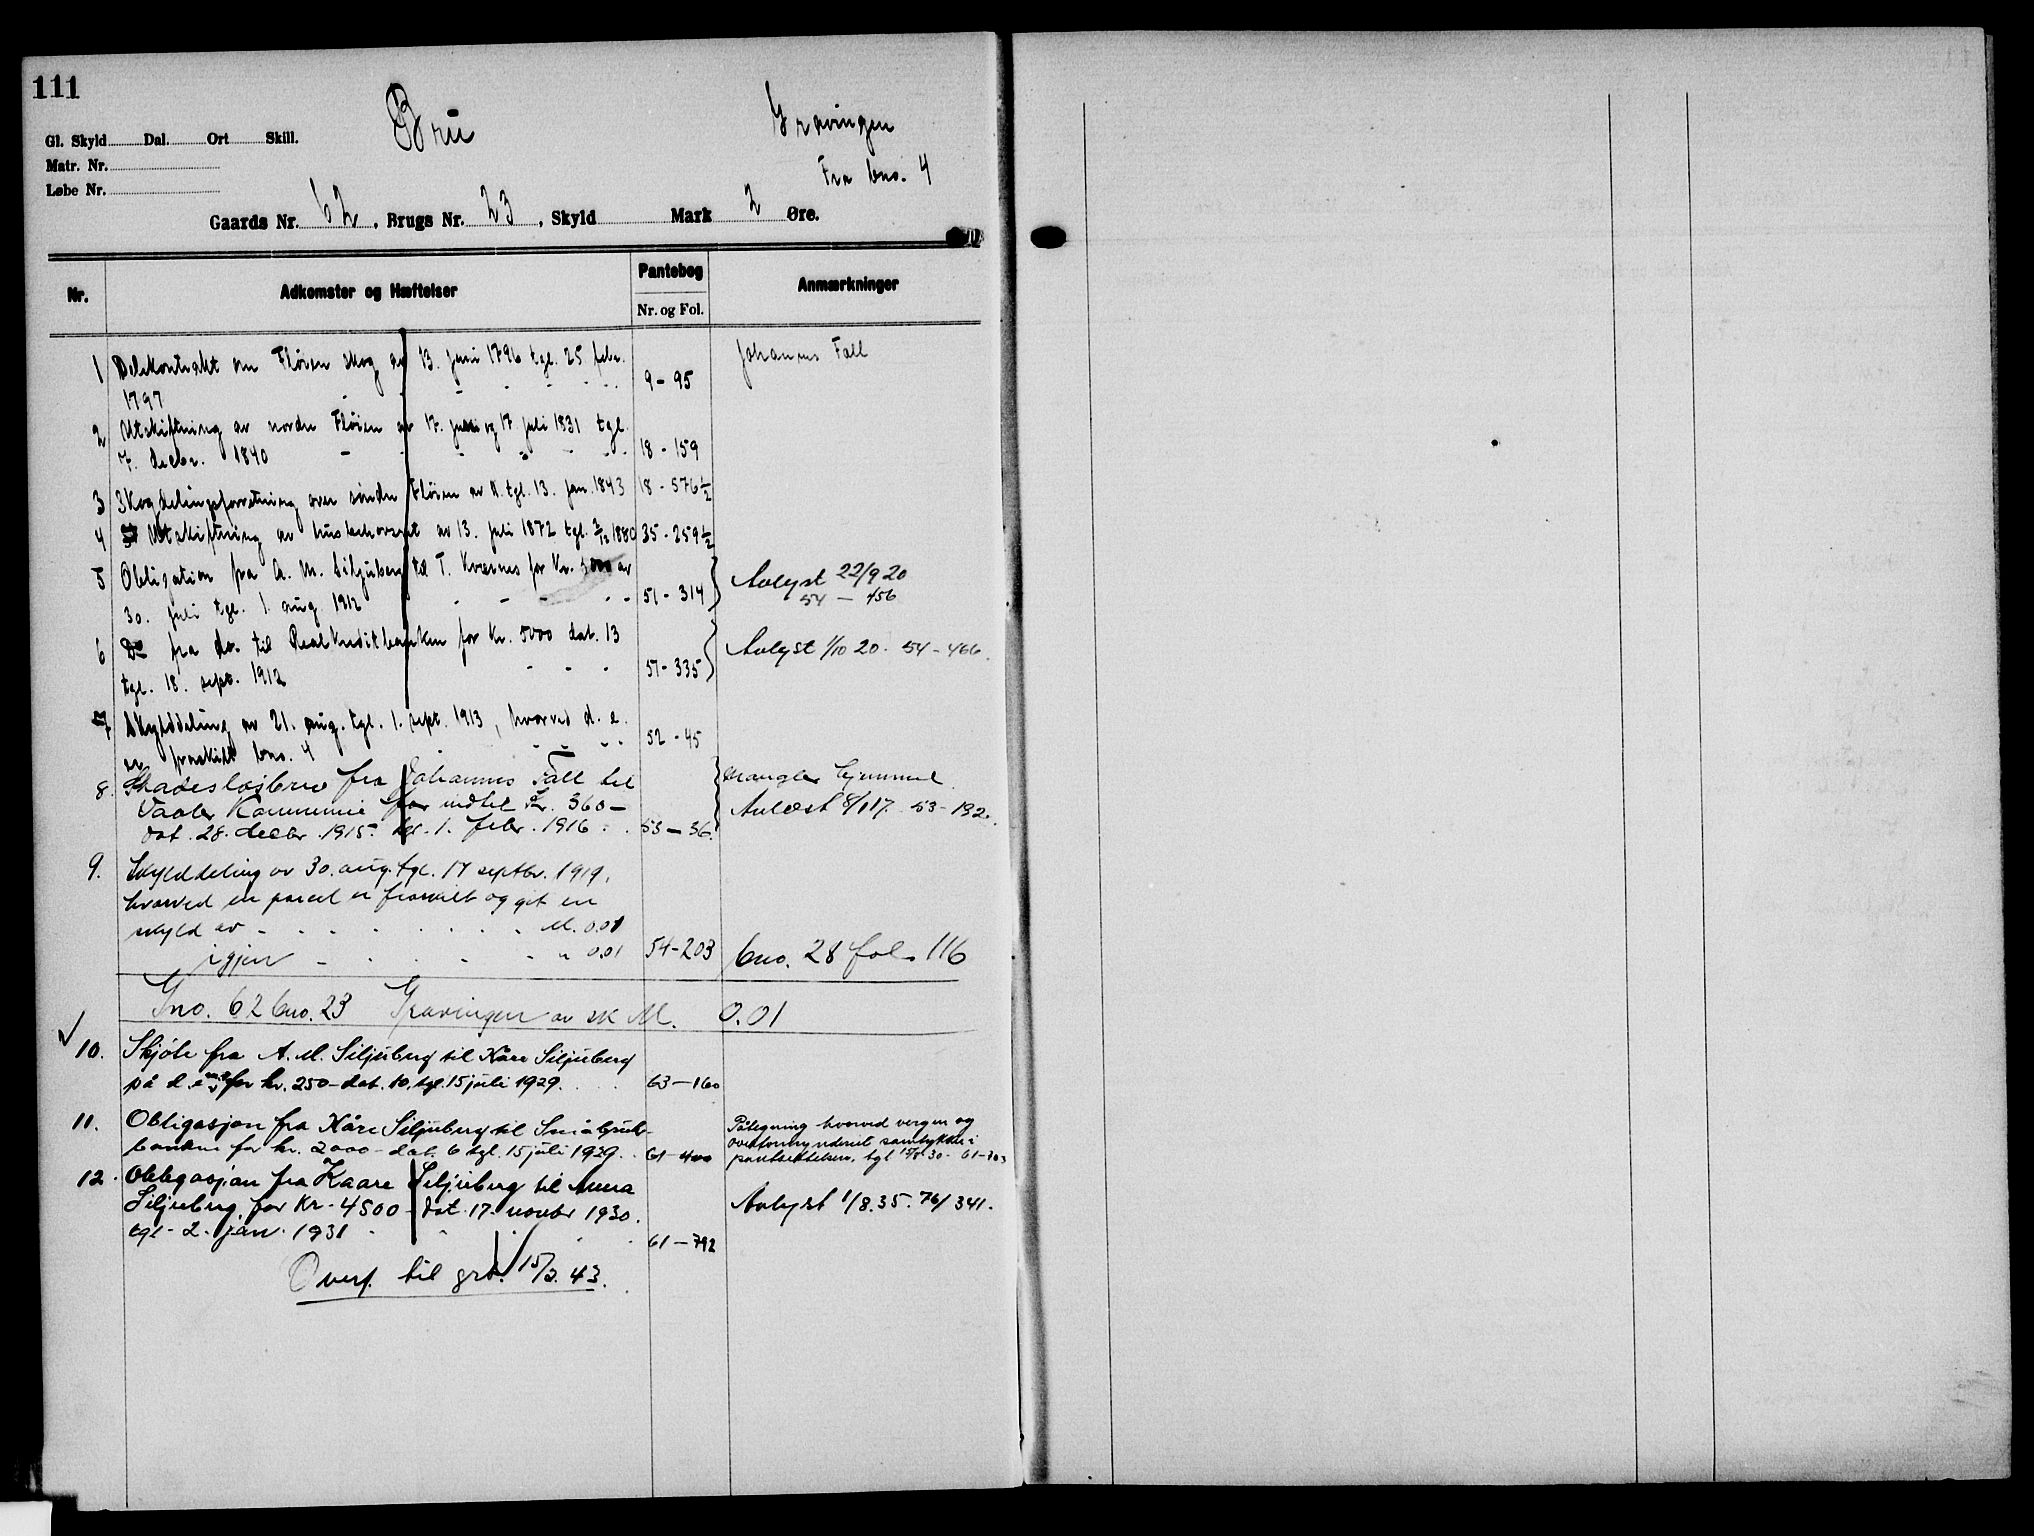 111
Bru
Gravingen
Fra bno. 4
Gl. Skyld Dal. Ort Skill.
Matr. Nr.
Løbe Nr.
Gaards Nr. 62, Brugs Nr. 23, Skyld Mark 2 Øre.
Nr. Adkomster og Hæftelser Pantebog Anmærkninger
Nr. og Fol.
1 Delekontrakt om Fløien skog av 13. juni 1796 tgl. 25 febr. Johannes Fall
1797 9-95
2 Utskiftning av nordre Fløien av 17. juni og 17 juli 1831 tgl.
7. decbr. 1840 18-159
3 Skogdelingsforretning over søndre Fløien av N. tgl. 13. jan. 1843 18-576½
4 Utskiftning av husbehovsret av 13. juli 1872 tgl. 3/12 1880 35-259½
5 Obligation fra A. M. Siljuberg til T. Kvernes for Kr. 5000 av
30. juli tgl. 1. aug 1912 51-314 Avlyst 22/9 20
54 - 456
6 Do fra do. til Realkreditbanken for kr. 5000 dat. 13
tgl. 18. sept. 1912 51-335 Avlyst 1/10 20. 54-466.
7 Skylddeling av 21. aug. tgl. 1. sept. 1913, hvorved d. e.
er fraskilt bno. 4 52-45
8. Skadesløsbrev fra Johannes Fall til mangler hjemmel.
Vaaler Kommune for indtil Kr. 360- Avlæst 8/1 17. 53-132.
dat. 28. decbr. 1915. tgl. 1. febr. 1916 53-36.
9. Skylddeling av 30. aug. tgl. 17 septbr. 1919,
hvorved en parcel er fraskilt og git en
skyld av M. 0.01
igjen " 0.01 54-203 bno. 28 fol. 116
Gno. 62 bno. 23 Gravingen av sk M. 0.01
10. Skjøte fra A. M. Siljuberg til Kåre Siljuberg
på d. e. for kr. 250- dat. 10. tgl. 15 juli 1929. 63-160
11. Obligasjon fra Kåre Siljuberg til Småbruk-
banken for kr. 2000- dat. 6 tgl. 15 juli 1929. 61-400
Påtegning hvorved vergen og
overformynderiet samtykker i
pantsettelsen. tgl 15/8 30- 61-703
12. Obligasjon fra Kaare Siljuberg til Anna
Siljuberg, for Kr. 4500- dat. 17. novbr 1930. Avlyst 1/8.35. 76/341.
tgl. 2. jan. 1931 61-792
Overf. til grb. 15/3. 43.